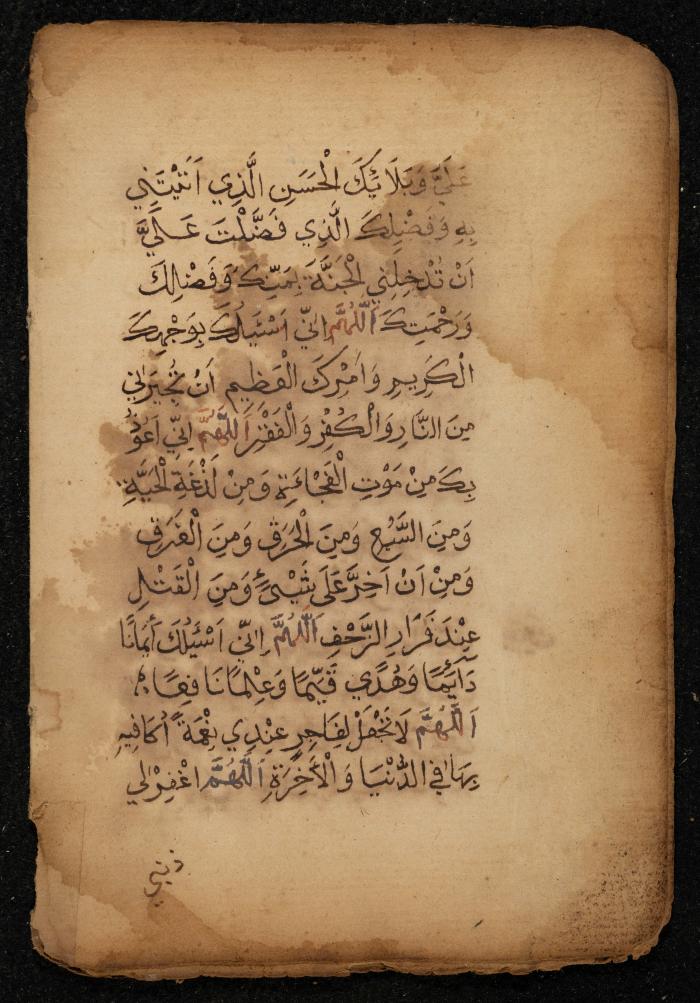 عَلَيَّ وَبَلَائِكَ الْحَسَنِ الَّذِي اَثْنَيْتَنِي
بِهِ وَفَضْلِكَ الَّذِي فَضَّلْتَ عَلَيَّ
اَنْ تُدْخِلَنِي الْجَنَّةَ بِمَنِّكَ وَفَضْلِكَ
وَرَحْمَتِكَ اَللّٰهُمَّ اِنِّي اَسْئَلُكَ بِوَجْهِكَ
الْكَرِيمِ وَاَمْرِكَ الْعَظِيمِ اَنْ تُجِيرَنِي
مِنَ النَّارِ وَالْكُفْرِ وَالْفَقْرِ اَللّٰهُمَّ اِنِّي اَعُوذُ
بِكَ مِنْ مَوْتِ الْفَجْائَةِ وَمِنْ لَدْغَةِ الْحَيَّةِ
وَمِنَ السَّبُعِ وَمِنَ الْحَرَقِ وَمِنَ الْغَرَقِ
وَمِنْ اَنْ اَخِرَّ عَلَى شَيْئٍ وَمِنَ الْقَتْلِ
عِنْدَ فَرَارِ الزَّحْفِ اَللّٰهُمَّ اِنِّي اَسْئَلُكَ اَيمَانًا
دَآئِمًا وَهُدًي قَيِّمًا وَعِلْمًا نَافِعًا
اَللّٰهُمَّ لَا تَجْعَلْ لِفَاجِرٍ عِنْدِي نِعْمَةً اُكَافِيهِ
بِهَا فِي الدُّنْيَا وَالْاَخِرَةِ اَللّٰهُمَّ اغْفِرْلِي
ذنبي